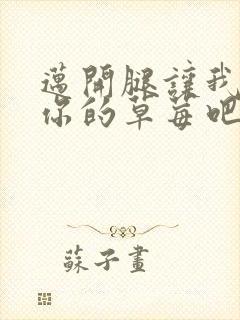 邁開腿讓我
你的草莓吧
蘇子畫